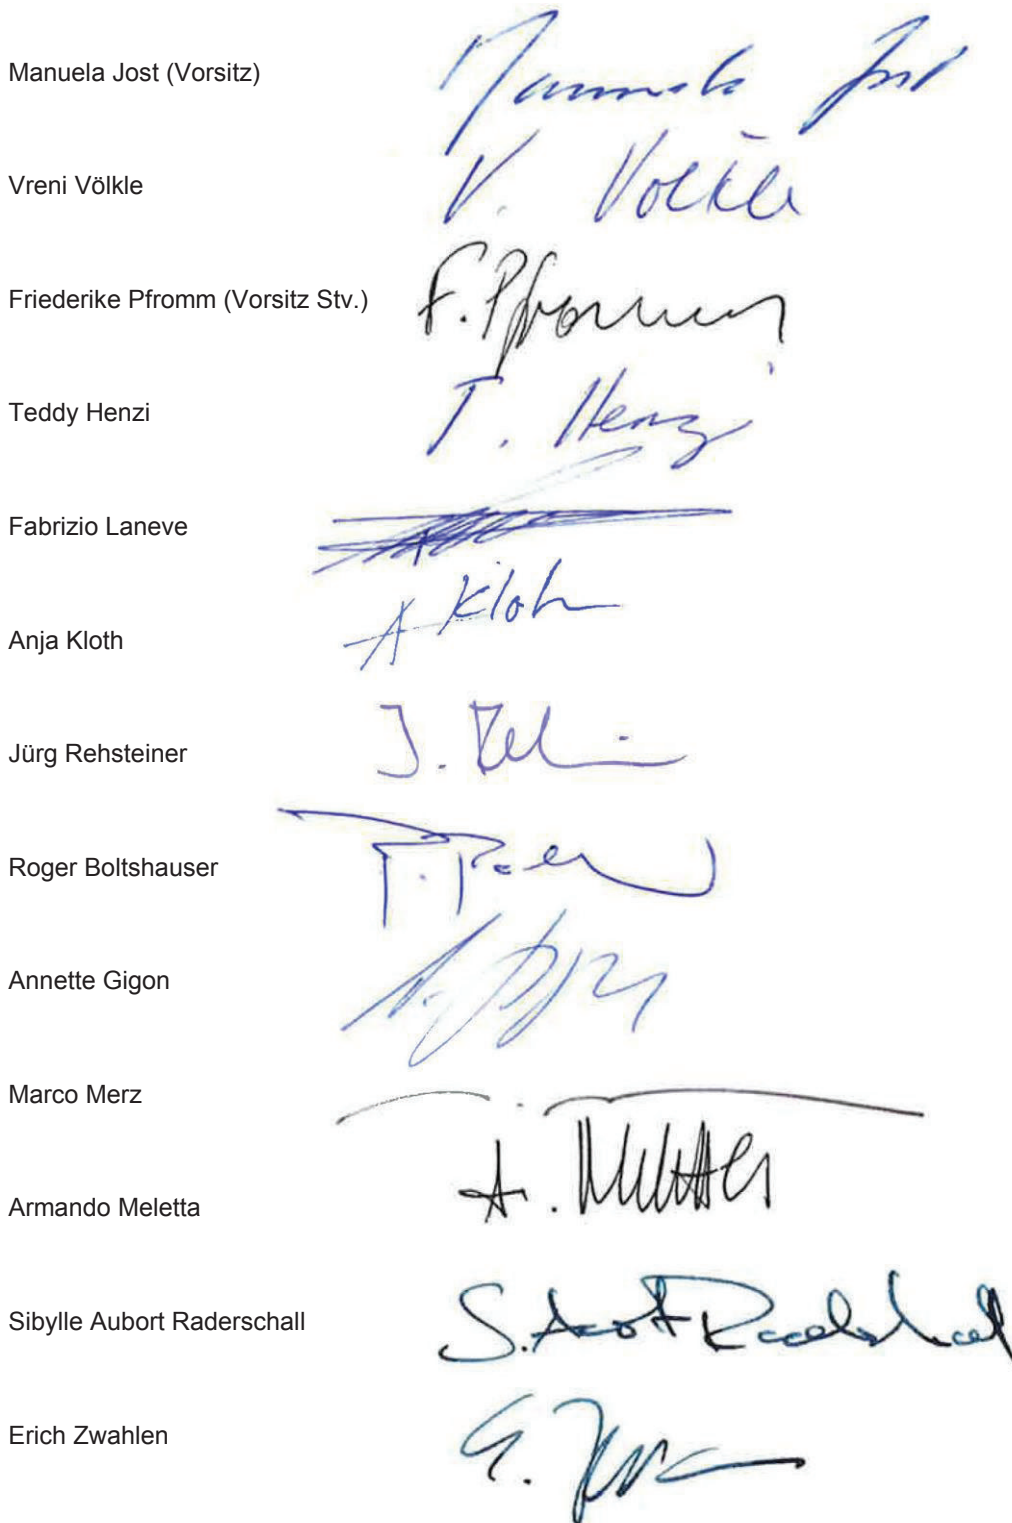 Manuela Jost (Vorsitz) Manuela Jost
Vreni Völkle V. Völkle
Friederike Pfromm (Vorsitz Stv.) F. Pfromm
Teddy Henzi T. Henzi
Fabrizio Laneve
Anja Kloth A Kloth
Jürg Rehsteiner J.
Roger Boltshauser
Annette Gigon
Marco Merz
Armando Meletta A. Meletta
Sibylle Aubort Raderschall S. Aubort Raderschall
Erich Zwahlen E.